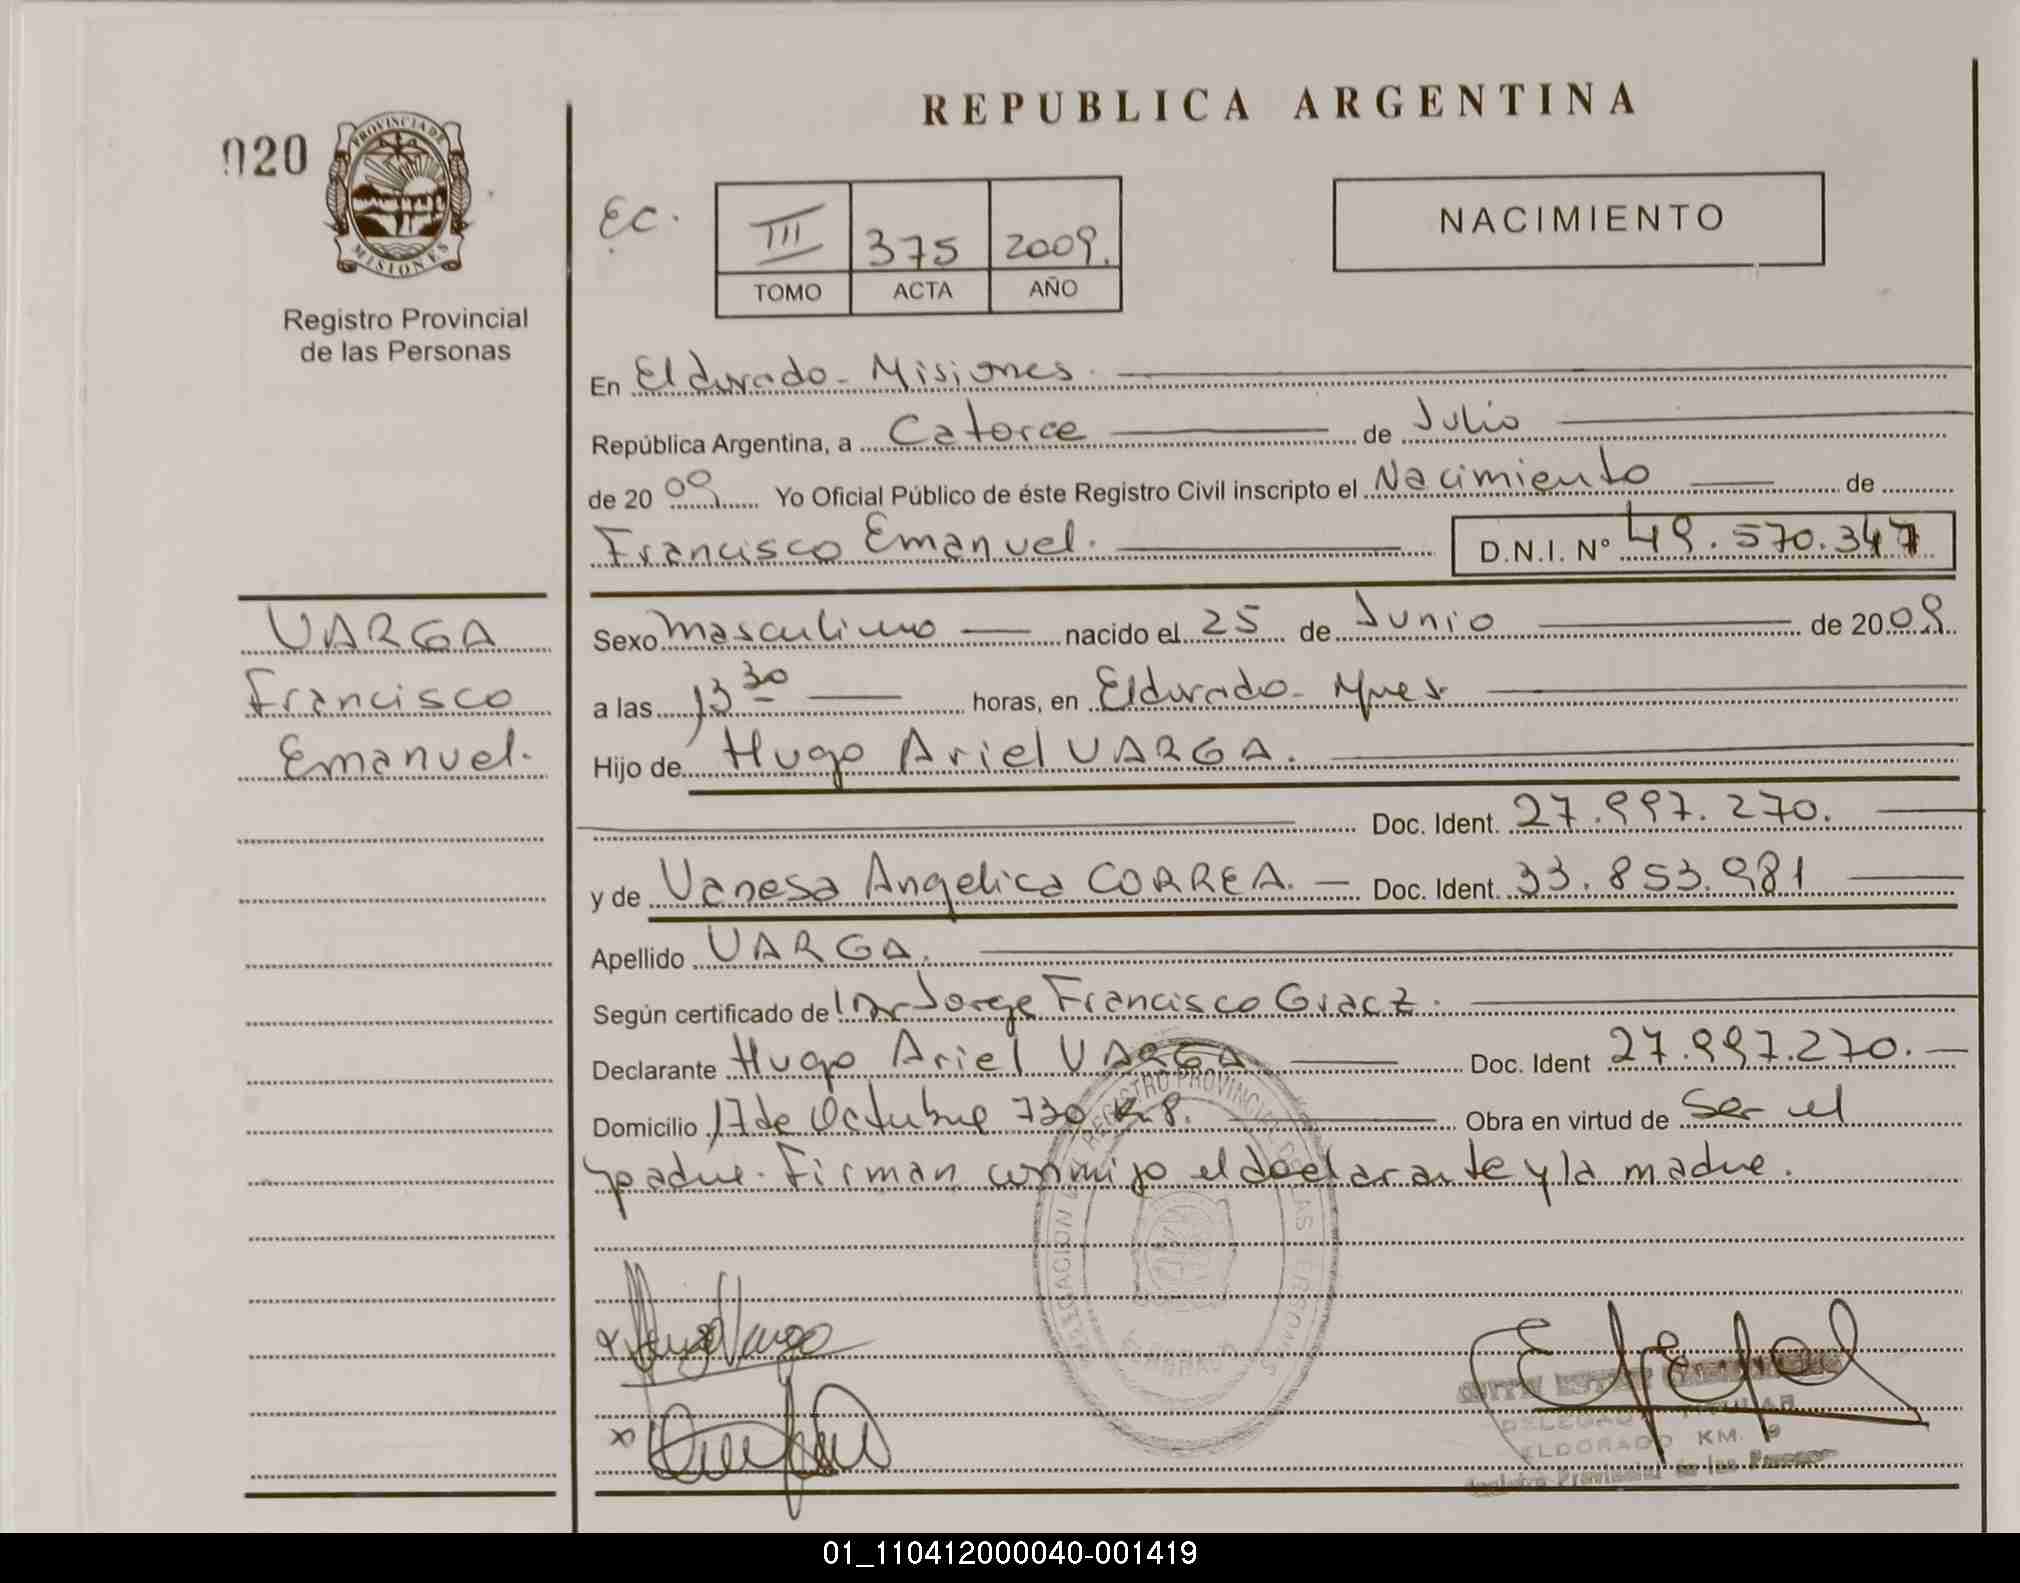 REPUBLICA ARGENTINA
020
PROVINCIA DE
MISIONES
Registro Provincial
de las Personas
EC.
III 375 2009.
TOMO ACTA AÑO
NACIMIENTO
En Eldorado - Misiones.
República Argentina, a Catorce de Julio
de 2009 Yo Oficial Público de éste Registro Civil inscripto el Nacimiento de
Francisco Emanuel. D.N.I. Nº 49.570.347
VARGA
Francisco
Emanuel.
Sexo masculino nacido el 25 de Junio de 2009
a las 13 30 horas, en Eldorado - Mnes.
Hijo de Hugo Ariel VARGA.
Doc. Ident. 27.997.270.
y de Vanesa Angelica CORREA. Doc. Ident. 33.853.981
Apellido VARGA.
Según certificado de Dr Jorge Francisco Gracz.
Declarante Hugo Ariel VARGA Doc. Ident 27.997.270.
Domicilio 17 de Octubre 730 K 8. Obra en virtud de Ser el
padre. Firman conmigo el declarante y la madre.
REGISTRO PROVINCIAL DE LAS PERSONAS
DELEGACION
ELDORADO
Hugo Varga
DELEGADO TITULAR
ELDORADO KM. 9
Registro Provincial de las Personas
01_110412000040-001419